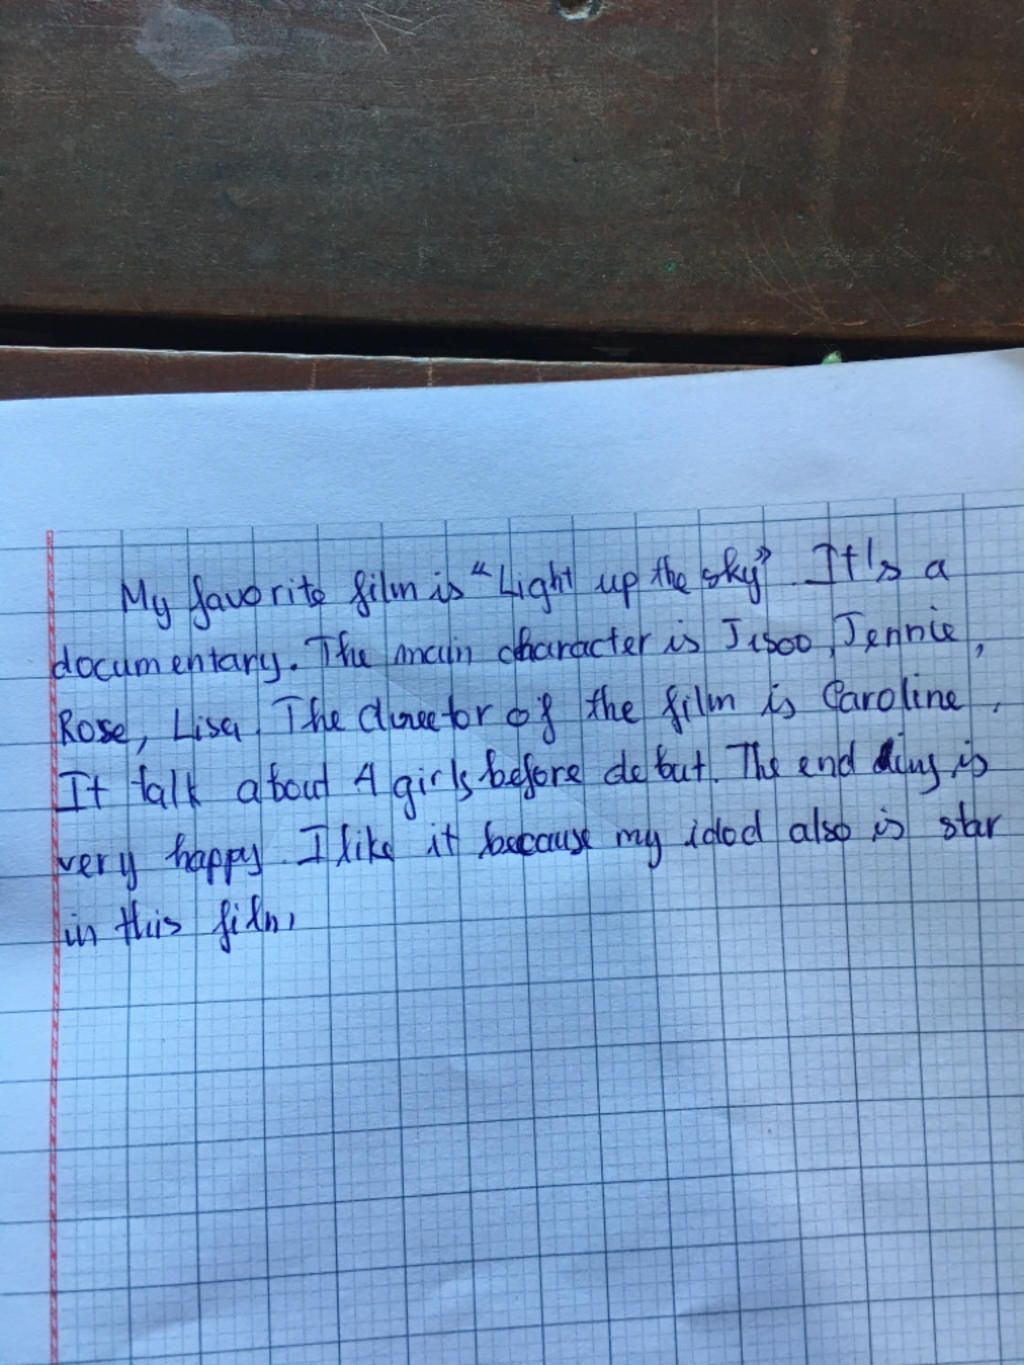 My favorite film is "Light up the sky". It's a
documentary. The main character is Jisoo, Jennie,
Rose, Lisa. The director of the film is Caroline.
It talk about 4 girls before debut. The ending is
very happy. I like it because my idod also is star
in this film,